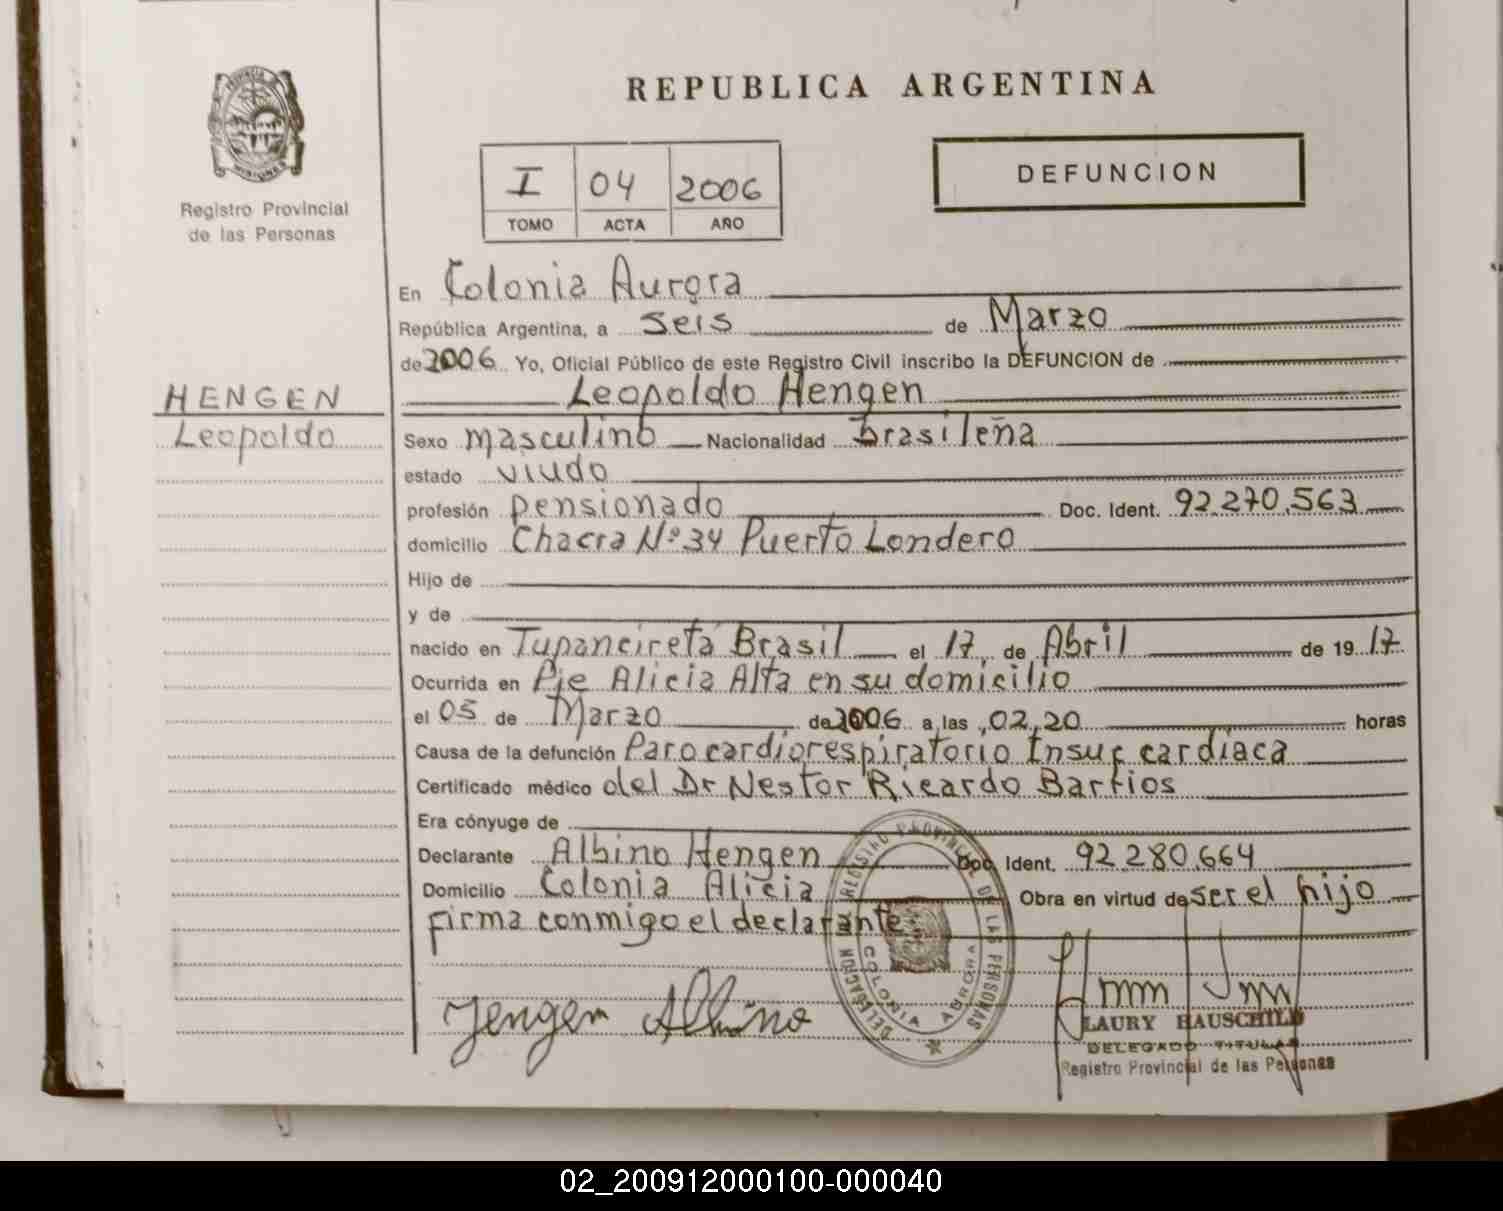 REPUBLICA ARGENTINA
PROVINCIA DE
MISIONES
Registro Provincial
de las Personas
I 04 2006
TOMO ACTA AÑO
DEFUNCION
En Colonia Aurora
República Argentina, a seis de Marzo
de 2006. Yo, Oficial Público de este Registro Civil inscribo la DEFUNCION de
HENGEN
Leopoldo Hengen
Leopoldo
Sexo masculino Nacionalidad brasileña
estado viudo
profesión pensionado Doc. Ident. 92.270.563
domicilio Chacra Nº 34 Puerto Londero
Hijo de
y de
nacido en Tupancireta Brasil el 17 de Abril de 1917
Ocurrida en Pje Alicia Alta en su domicilio
el 05 de Marzo de 2006 a las 02,20 horas
Causa de la defunción Paro cardiorespiratorio Insuf cardiaca
Certificado médico del Dr Nestor Ricardo Barrios
Era cónyuge de
Declarante Albino Hengen Doc. Ident. 92.280.664
Domicilio Colonia Alicia Obra en virtud de ser el hijo
firma conmigo el declarante
DELEGACION REGISTRO PROVINCIAL DE LAS PERSONAS
COLONIA AURORA
Hengen Albino
LAURY HAUSCHILD
DELEGADO TITULAR
Registro Provincial de las Personas
02_200912000100-000040